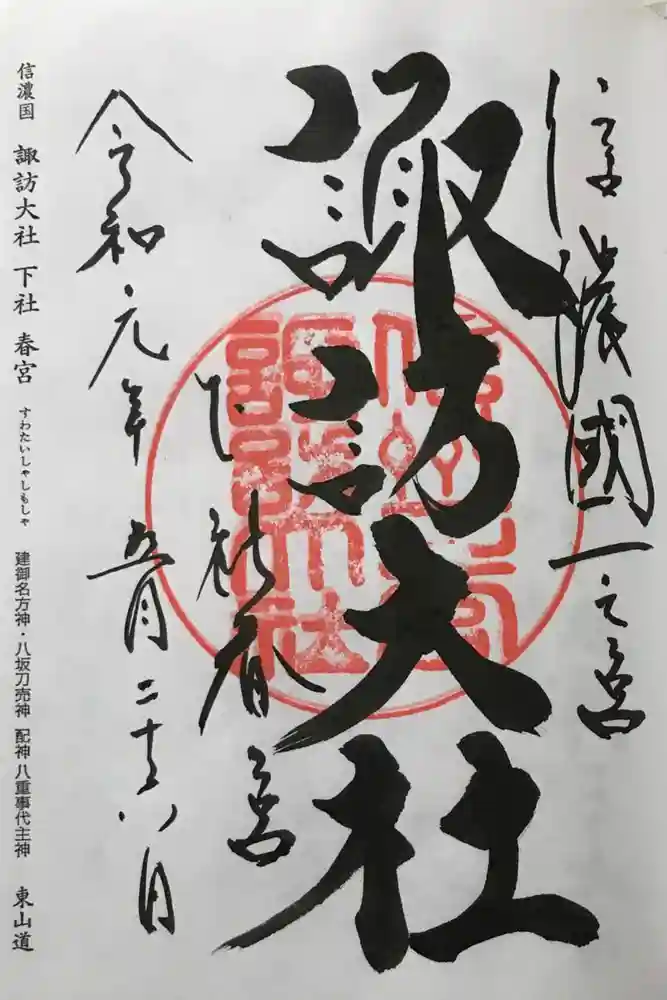 信濃國一之宮
諏訪大社
下社春宮
令和元年五月二十八日
信濃国 諏訪大社 下社 春宮 すわたいしゃしもしゃ 建御名方神・八坂刀売神 配神 八重事代主神 東山道